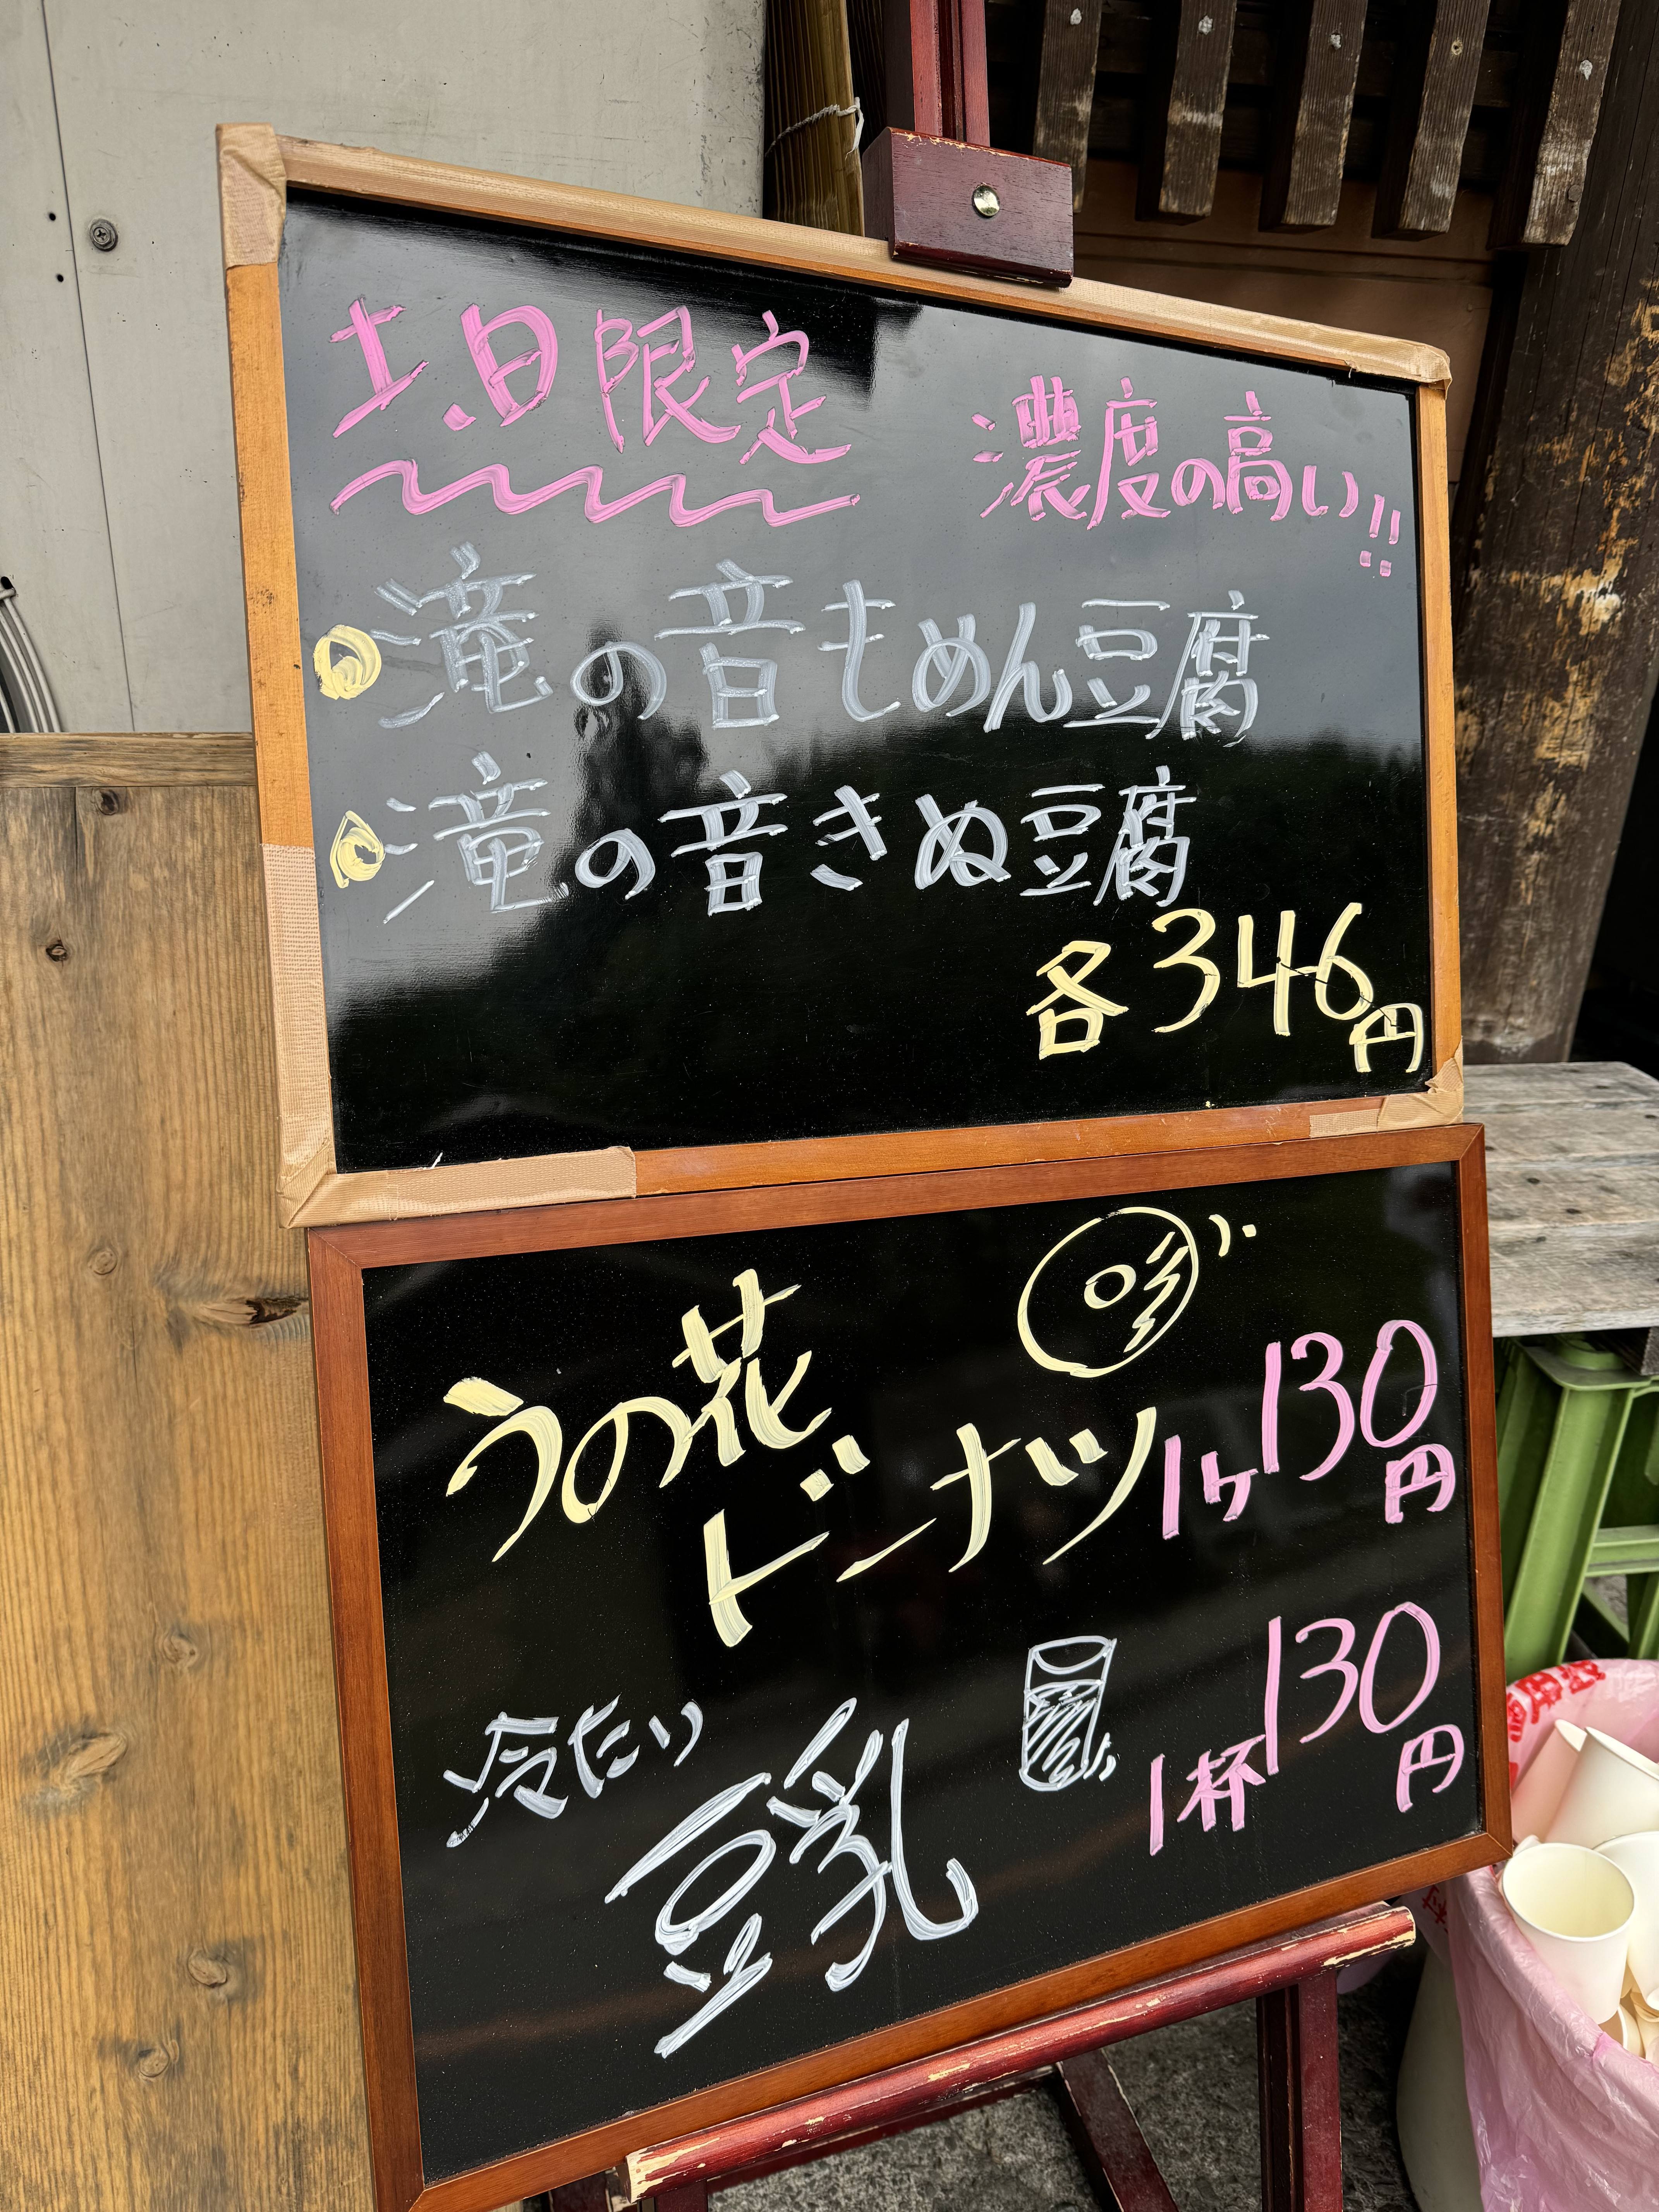 土.日限定
濃度の高い!!
滝の音もめん豆腐
滝の音きぬ豆腐
各346円
うの花
ドーナツ 1ヶ130円
冷たい
豆乳 1杯130円